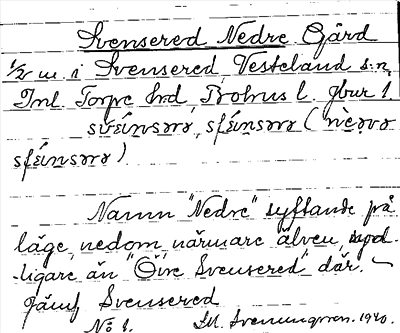 Svensered Nedre Gård
1/2 m. i Svensered, Vesteland s:n,
Inl. Torpe hrd, Bohus l. Jbur 1.
svéinsərə, sféinsərə (nèərə
sféinsərə).
Namn "Nedre" syftande på
läge, nedom, närmare älven,
ligare än "Övre Svensered" där.
Jämf Svensered
No 1.
1940.